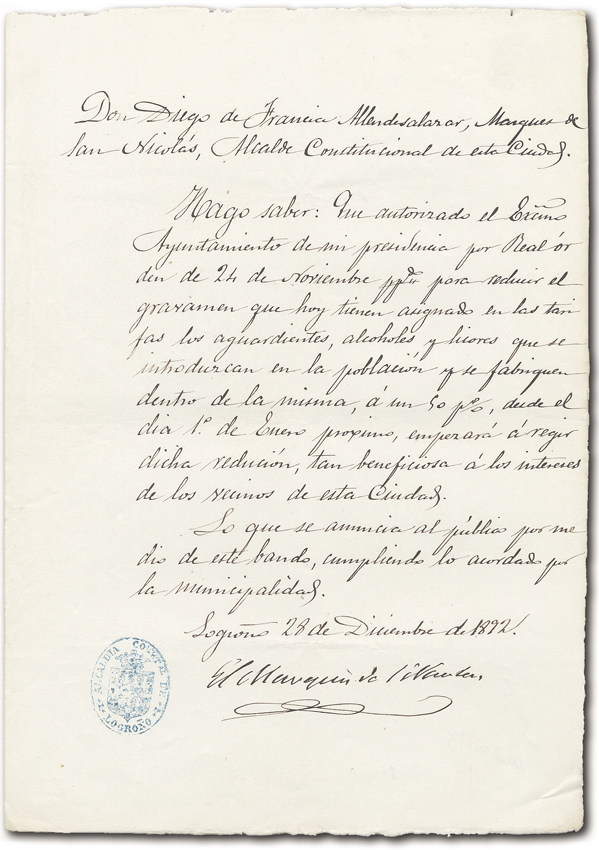 Don Diego de Francia Allendesalazar, Marques de
San Nicolás, Alcalde Constitucional de esta Ciudad.
Hago saber: Que autorizado el Excmo
Ayuntamiento de mi presidencia por Real ór
den de 24 de Noviembre ppdo para reducir el
gravamen que hoy tienen asignado en las tari
fas los aguardientes, alcoholes y licores que se
introduzcan en la población y se fabriquen
dentro de la misma, á un 50 p%, desde el
dia 1º de Enero proximo, empezará á regir
dicha redución, tan beneficiosa á los intereses
de los vecinos de esta Ciudad.
Lo que se anuncia al público por me
dio de este bando, cumpliendo lo acordado por
la municipalidad.
Logroño 28 de Diciembre de 1892.
El Marqués de S. Nicolás
ALCALDIA CONST.L DE
LOGROÑO